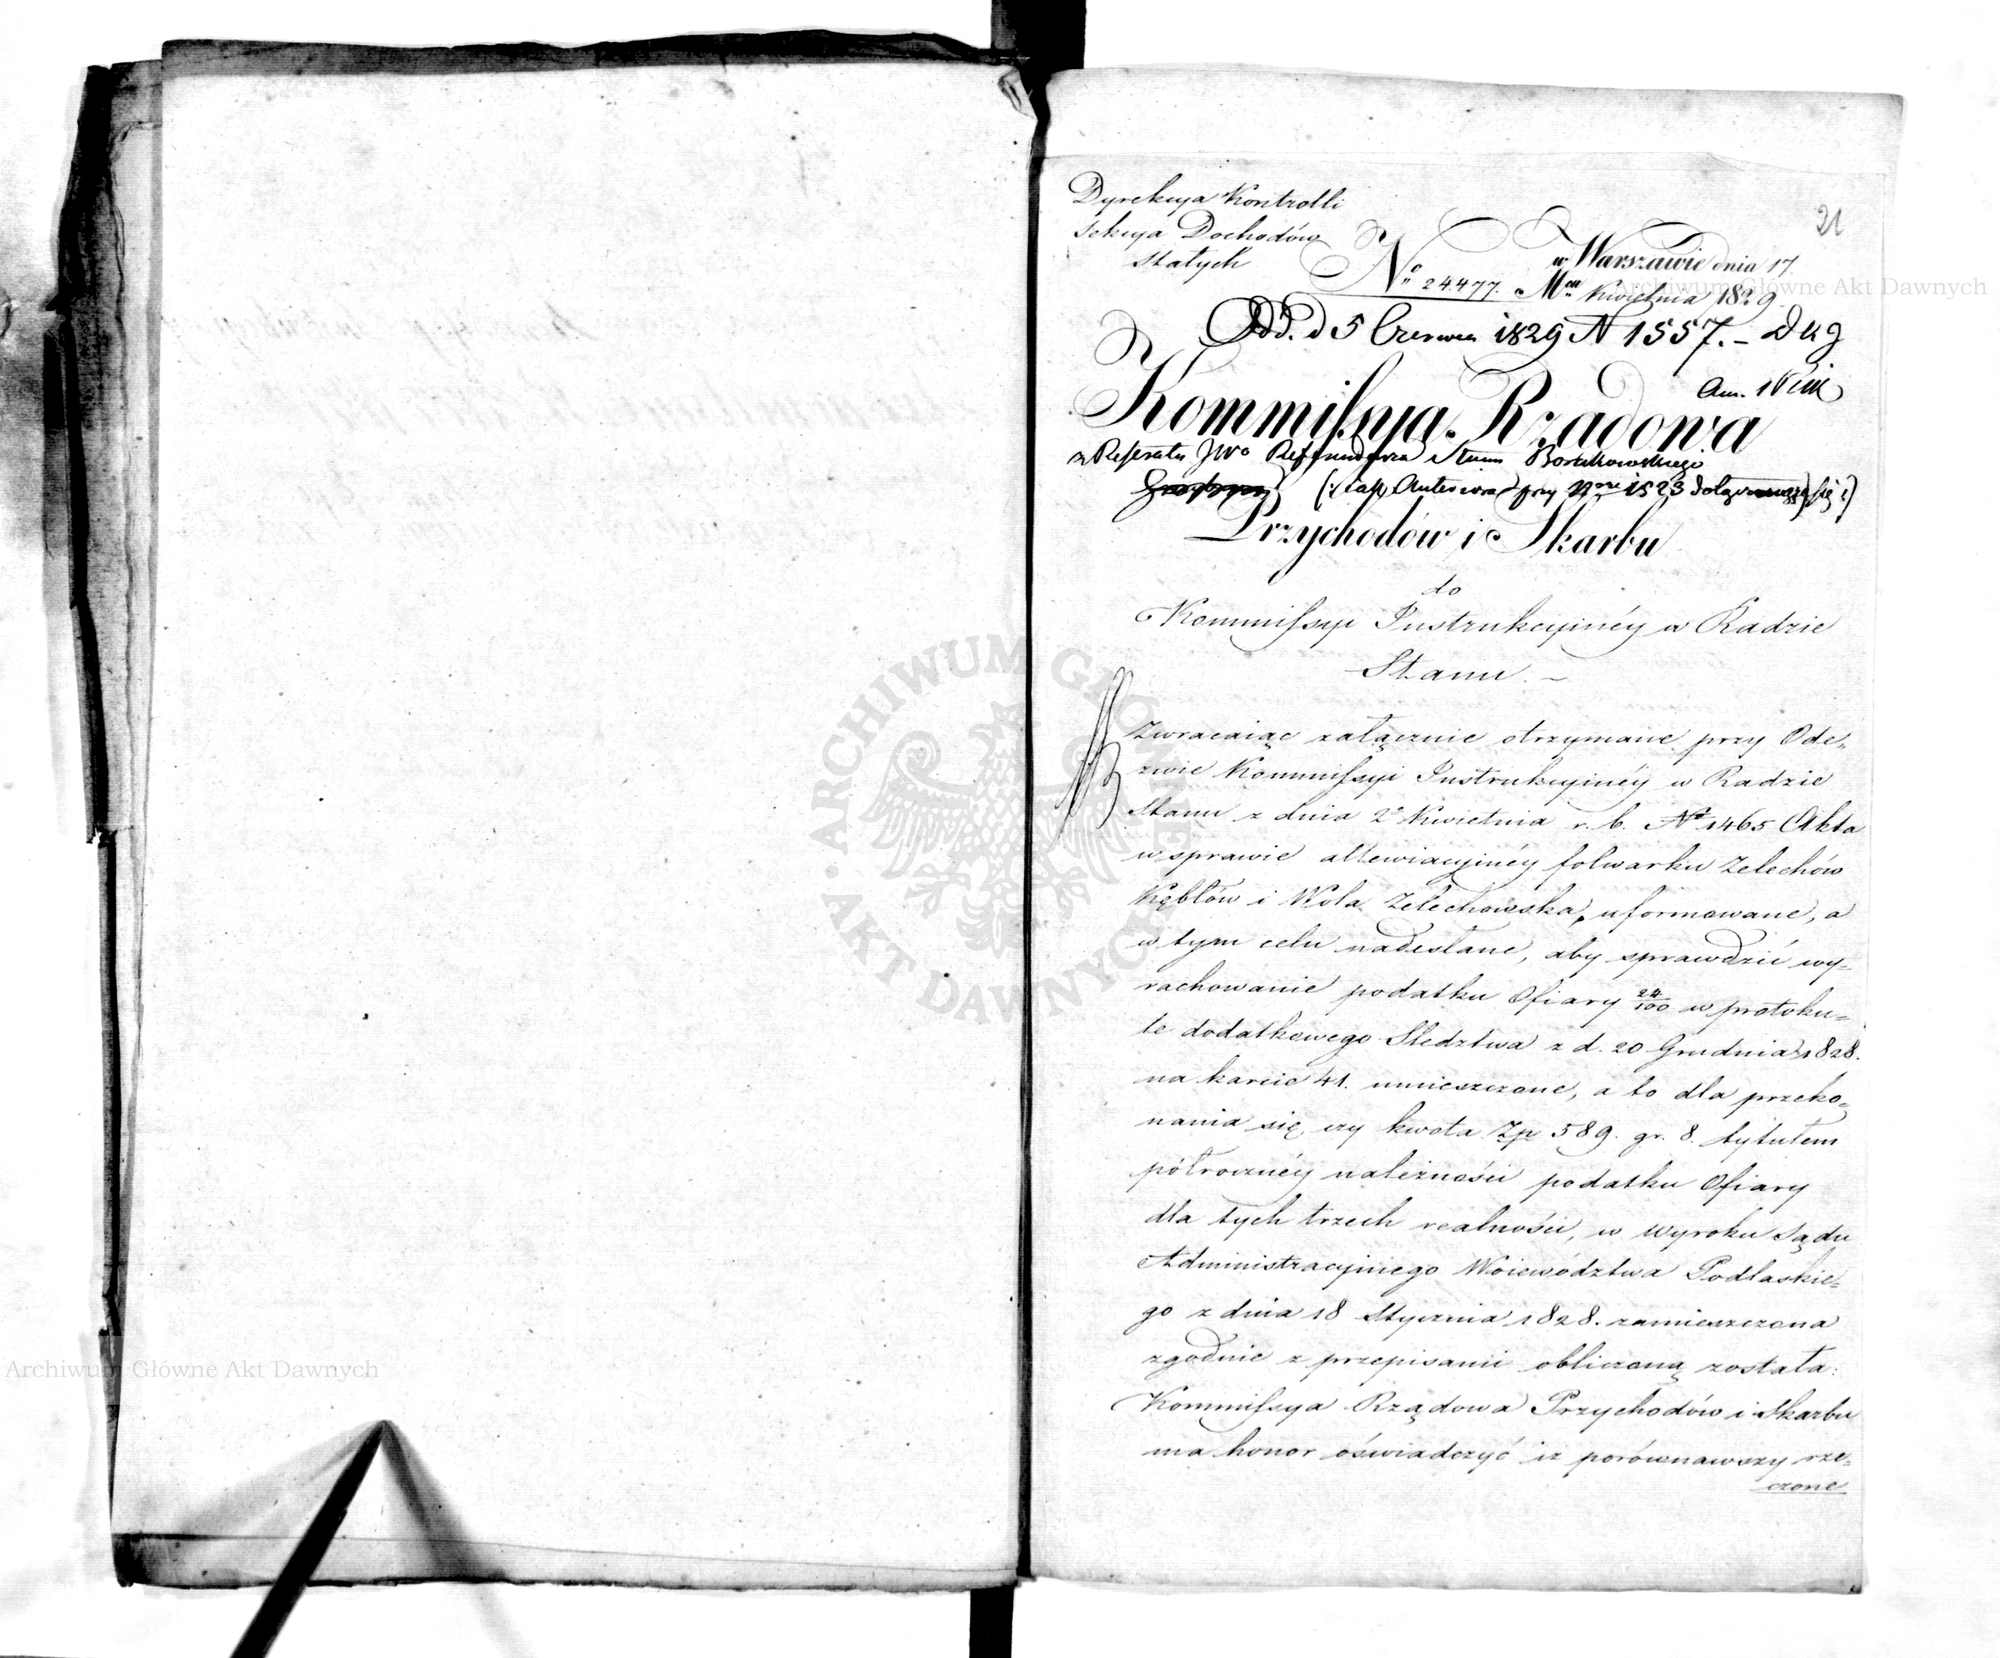 21
Dyrekcya Kontrolli
Sekcya Dochodów
Stałych
w Warszawie dnia 17.
No 24477. Mca Kwietnia 1829.
Odd. d 5 Czerwca 1829 N 1557. –
Kommissya Rządowa
z Referatu JWo Referendarza Stanu
(: tak przy Nrze 1523 :)
Przychodów i Skarbu
do
Kommissyi Instrukcyinéy w Radzie
Stanu. –
Zwracaiąc załącznie otrzymane przy Ode-
zwie Kommissyi Instrukcyinéy w Radzie
Stanu z dnia 2o Kwietnia r. b. No 1465 Akta
w sprawie allewiacyinéy folwarku Zelechów
Kębłów i Wola Zelechowska, uformowane, a
w tym celu nadesłane, aby sprawdzić wy-
rachowanie podatku Ofiary 24/100 w protoku-
le dodatkowego Sledztwa z d. 20 Grudnia 1828.
na karcie 41. umieszczone, a to dla przeko-
nania się czy kwota Zp 589. gr. 8. tytułem
półrocznéy należności podatku Ofiary
dla tych trzech realności, w wyroku Sądu
Administracyinego Woiewództwa Podlaskie-
go z dnia 18 Stycznia 1828. zamieszczona
zgodnie z przepisami obliczoną została:
Kommissya Rządowa Przychodów i Skarbu
ma honor oświadczyć iż porównawszy rze-
czone
Archiwum Główne Akt Dawnych
Archiwum Główne Akt Dawnych
A. ARCHIWUM GŁÓWNE AKT DAWNYCH